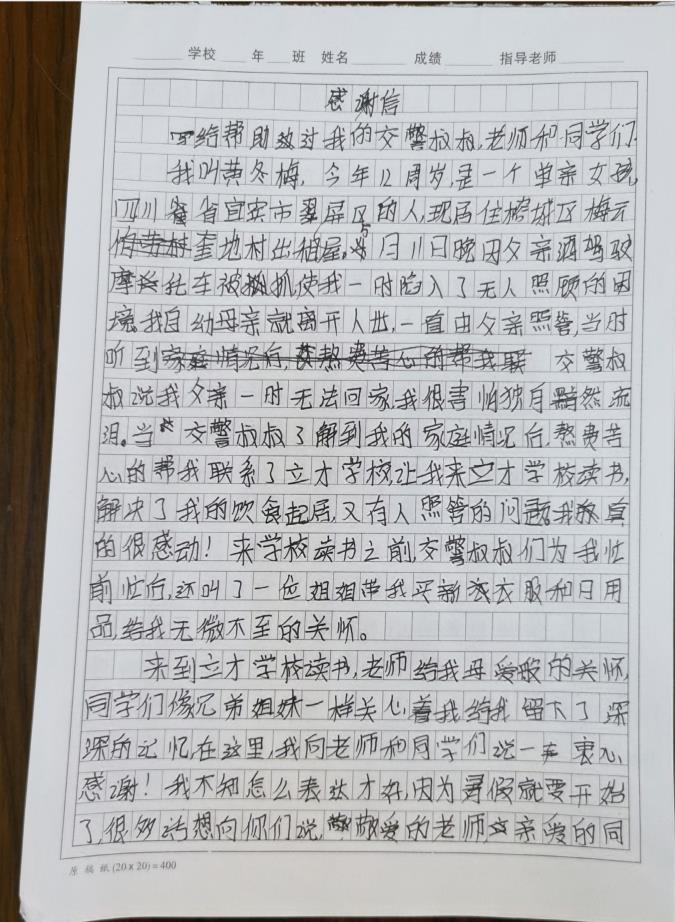 学校 年 班 姓名 成绩 指导老师
感谢信
写给帮助过我的交警叔叔,老师和同学们
我叫黄冬梅,今年12周岁,是一个单亲女孩,
四川省宜宾市翠屏区的人,现居住榕城区梅云
奎地村出租屋。5月11日晚因父亲酒驾驶
摩托车被抓使我一时陷入了无人照顾的困
境。我自幼母亲就离开人世,一直由父亲照管,当时
听到 交警叔
叔说我父亲一时无法回家,我很害怕独自黯然流
泪。当交警叔叔了解到我的家庭情况后,熬费苦
心的帮我联系了立才学校,让我来立才学校读书,
解决了我的饮食起居,又有人照管的问题我真
的很感动!来学校读书之前,交警叔叔们为我忙
前忙后,还叫了一位姐姐带我买新衣服和日用
品,给我无微不至的关怀。
来到立才学校读书,老师给我母爱般的关怀,
同学们像兄弟姐妹一样关心着我给我留下了深
深的记忆,在这里,我向老师和同学们说一声衷心
感谢!我不知怎么表达才好,因为暑假就要开始
了,很多话想向你们说,敬爱的老师,亲爱的同
原稿纸(20×20)=400